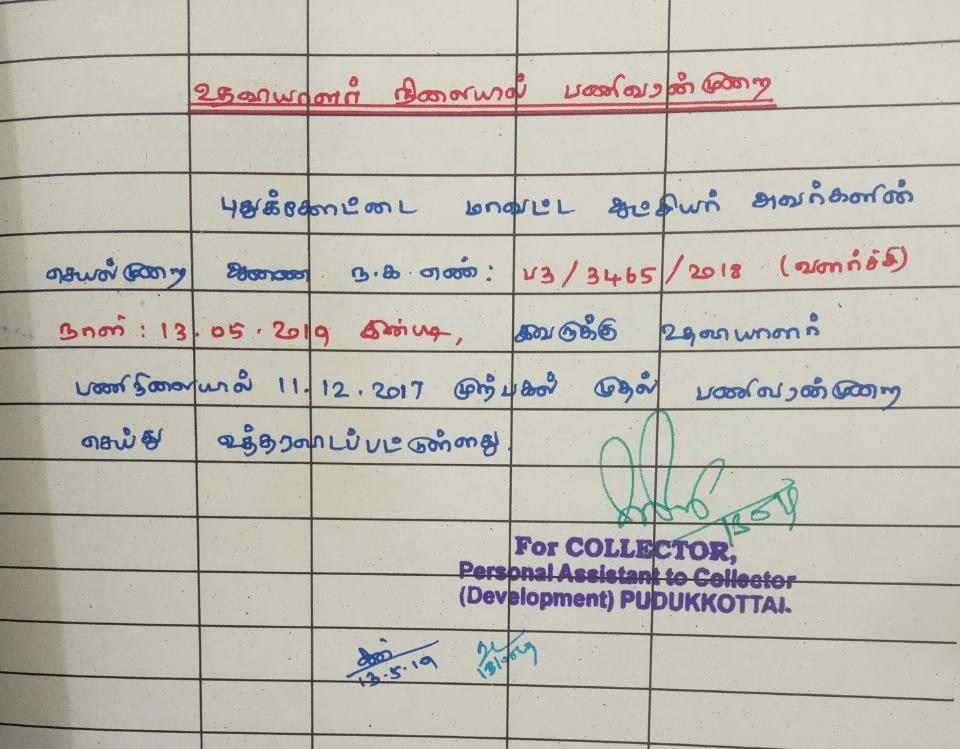 உதவியாளர் நிலையில் பணிவரன்முறை
புதுக்கோட்டை மாவட்ட ஆட்சியர் அவர்களின்
செயல்முறை ஆணை ந.க.எண்: ப3/3465/2018 (வளர்ச்சி)
நாள்: 13.05.2019 இன்படி, இவருக்கு உதவியாளர்
பணிநிலையில் 11.12.2017 முற்பகல் முதல் பணிவரன்முறை
செய்து உத்தரவிடப்பட்டுள்ளது.
For COLLECTOR,
Personal Assistant to Collector
(Development) PUDUKKOTTAI.
13.5.19